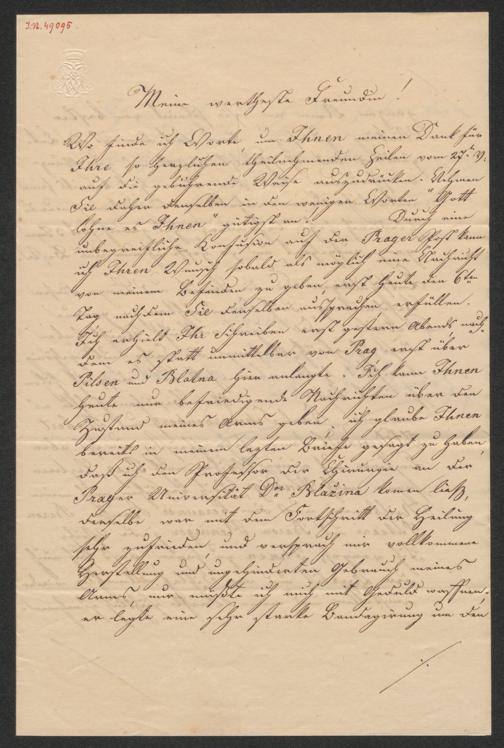 I.N. 49095
Meine wertheste Freundin!
Wo finde ich Worte, um Ihnen meinen Dank für
Ihre so herzlichen theilnehmenden Zeilen vom 27t. v.
auf die gebührende Weise auszudrücken. Nehmen
Sie daher denselben in den wenigen Worten "Gott
lohne es Ihnen" gütigst an. Durch eine
unbegreifliche Konfusion auf der Prager Post kann
ich Ihren Wunsch sobald als möglich eine Nachricht
von meinem Befinden zu geben, erst heute den 6ten
Tag nachdem Sie denselben aussprachen erfüllen.
Ich erhielt Ihr Schreiben erst gestern Abends nach-
dem es statt unmittelbar von Prag erst über
Pilsen und Blatna hier anlangte. Ich kann Ihnen
heute nur befriedigende Nachrichten über den
Zustand meines Arms geben, ich glaube Ihnen
bereits in meinem letzten Briefe gesagt zu haben,
daß ich den Professor der Chirurgie an der
Prager Universität Dr Blažina komen ließ,
derselbe war mit dem Fortschritt der Heilung
sehr zufrieden und versprach mir vollkommene
Herstellung und ungehinderten Gebrauch meines
Arms, nur müßte ich mich mit Geduld waffnen.
er legte eine sehr starke Bandagirung um den
./.